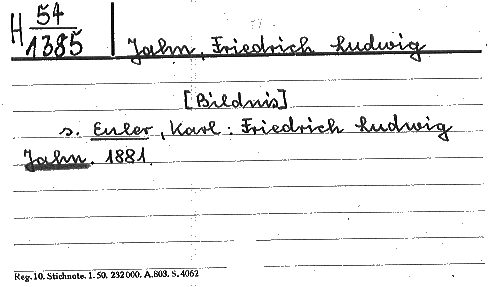 H 54
1385
Jahn, Friedrich Ludwig
[Bildnis]
s. Euler, Karl: Friedrich Ludwig
Jahn. 1881.
Reg. 10. Stichnote. 1. 50. 232000. A.803. S. 4062